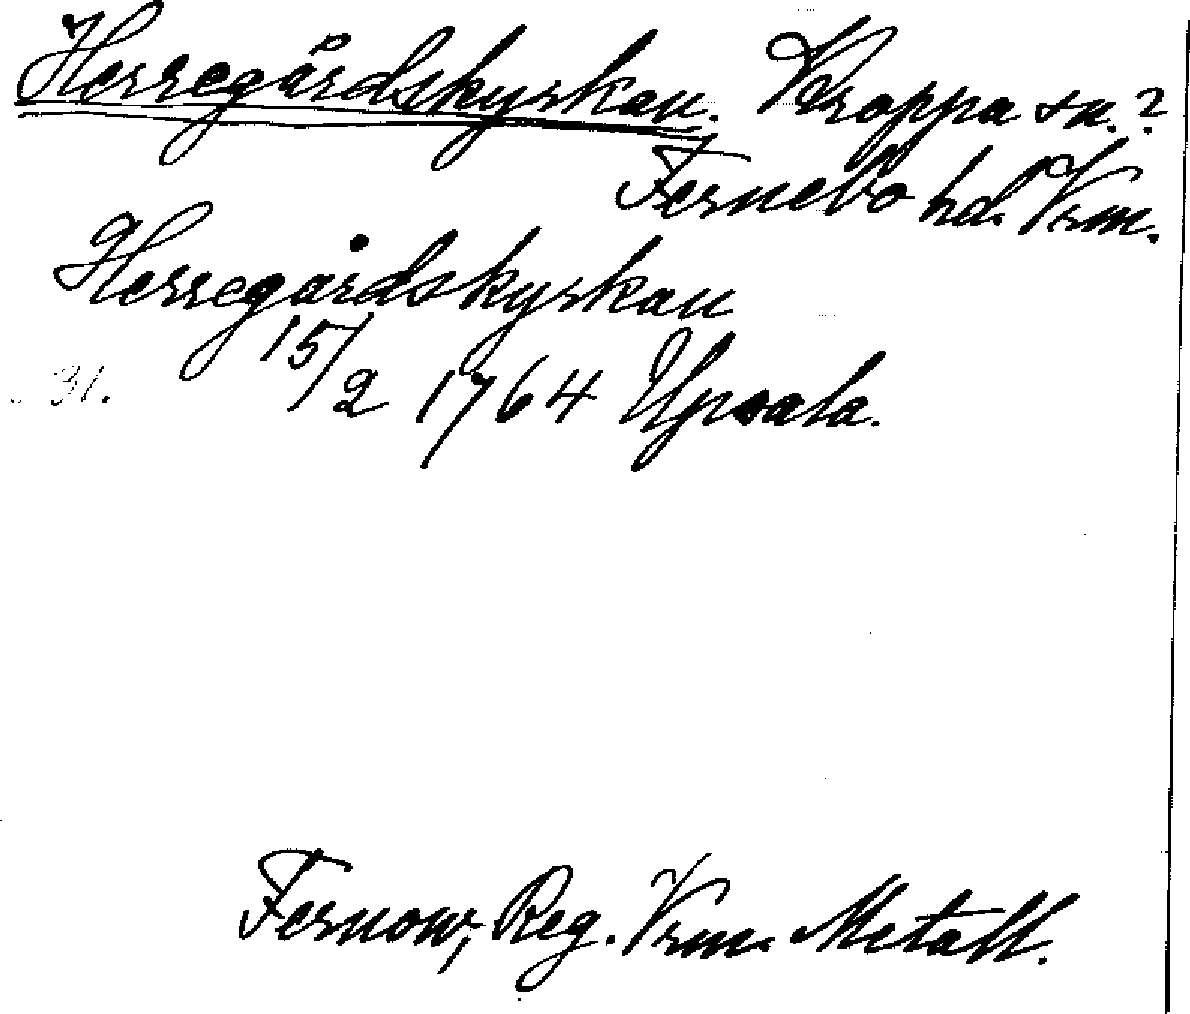 Herregårdskyrkan. Kroppa sn.?
Fernebo hd. Vrm.
Herregårdskyrkan
15/2 1764 Upsala.
31.
Fernow, Reg. Vrm. Metall.